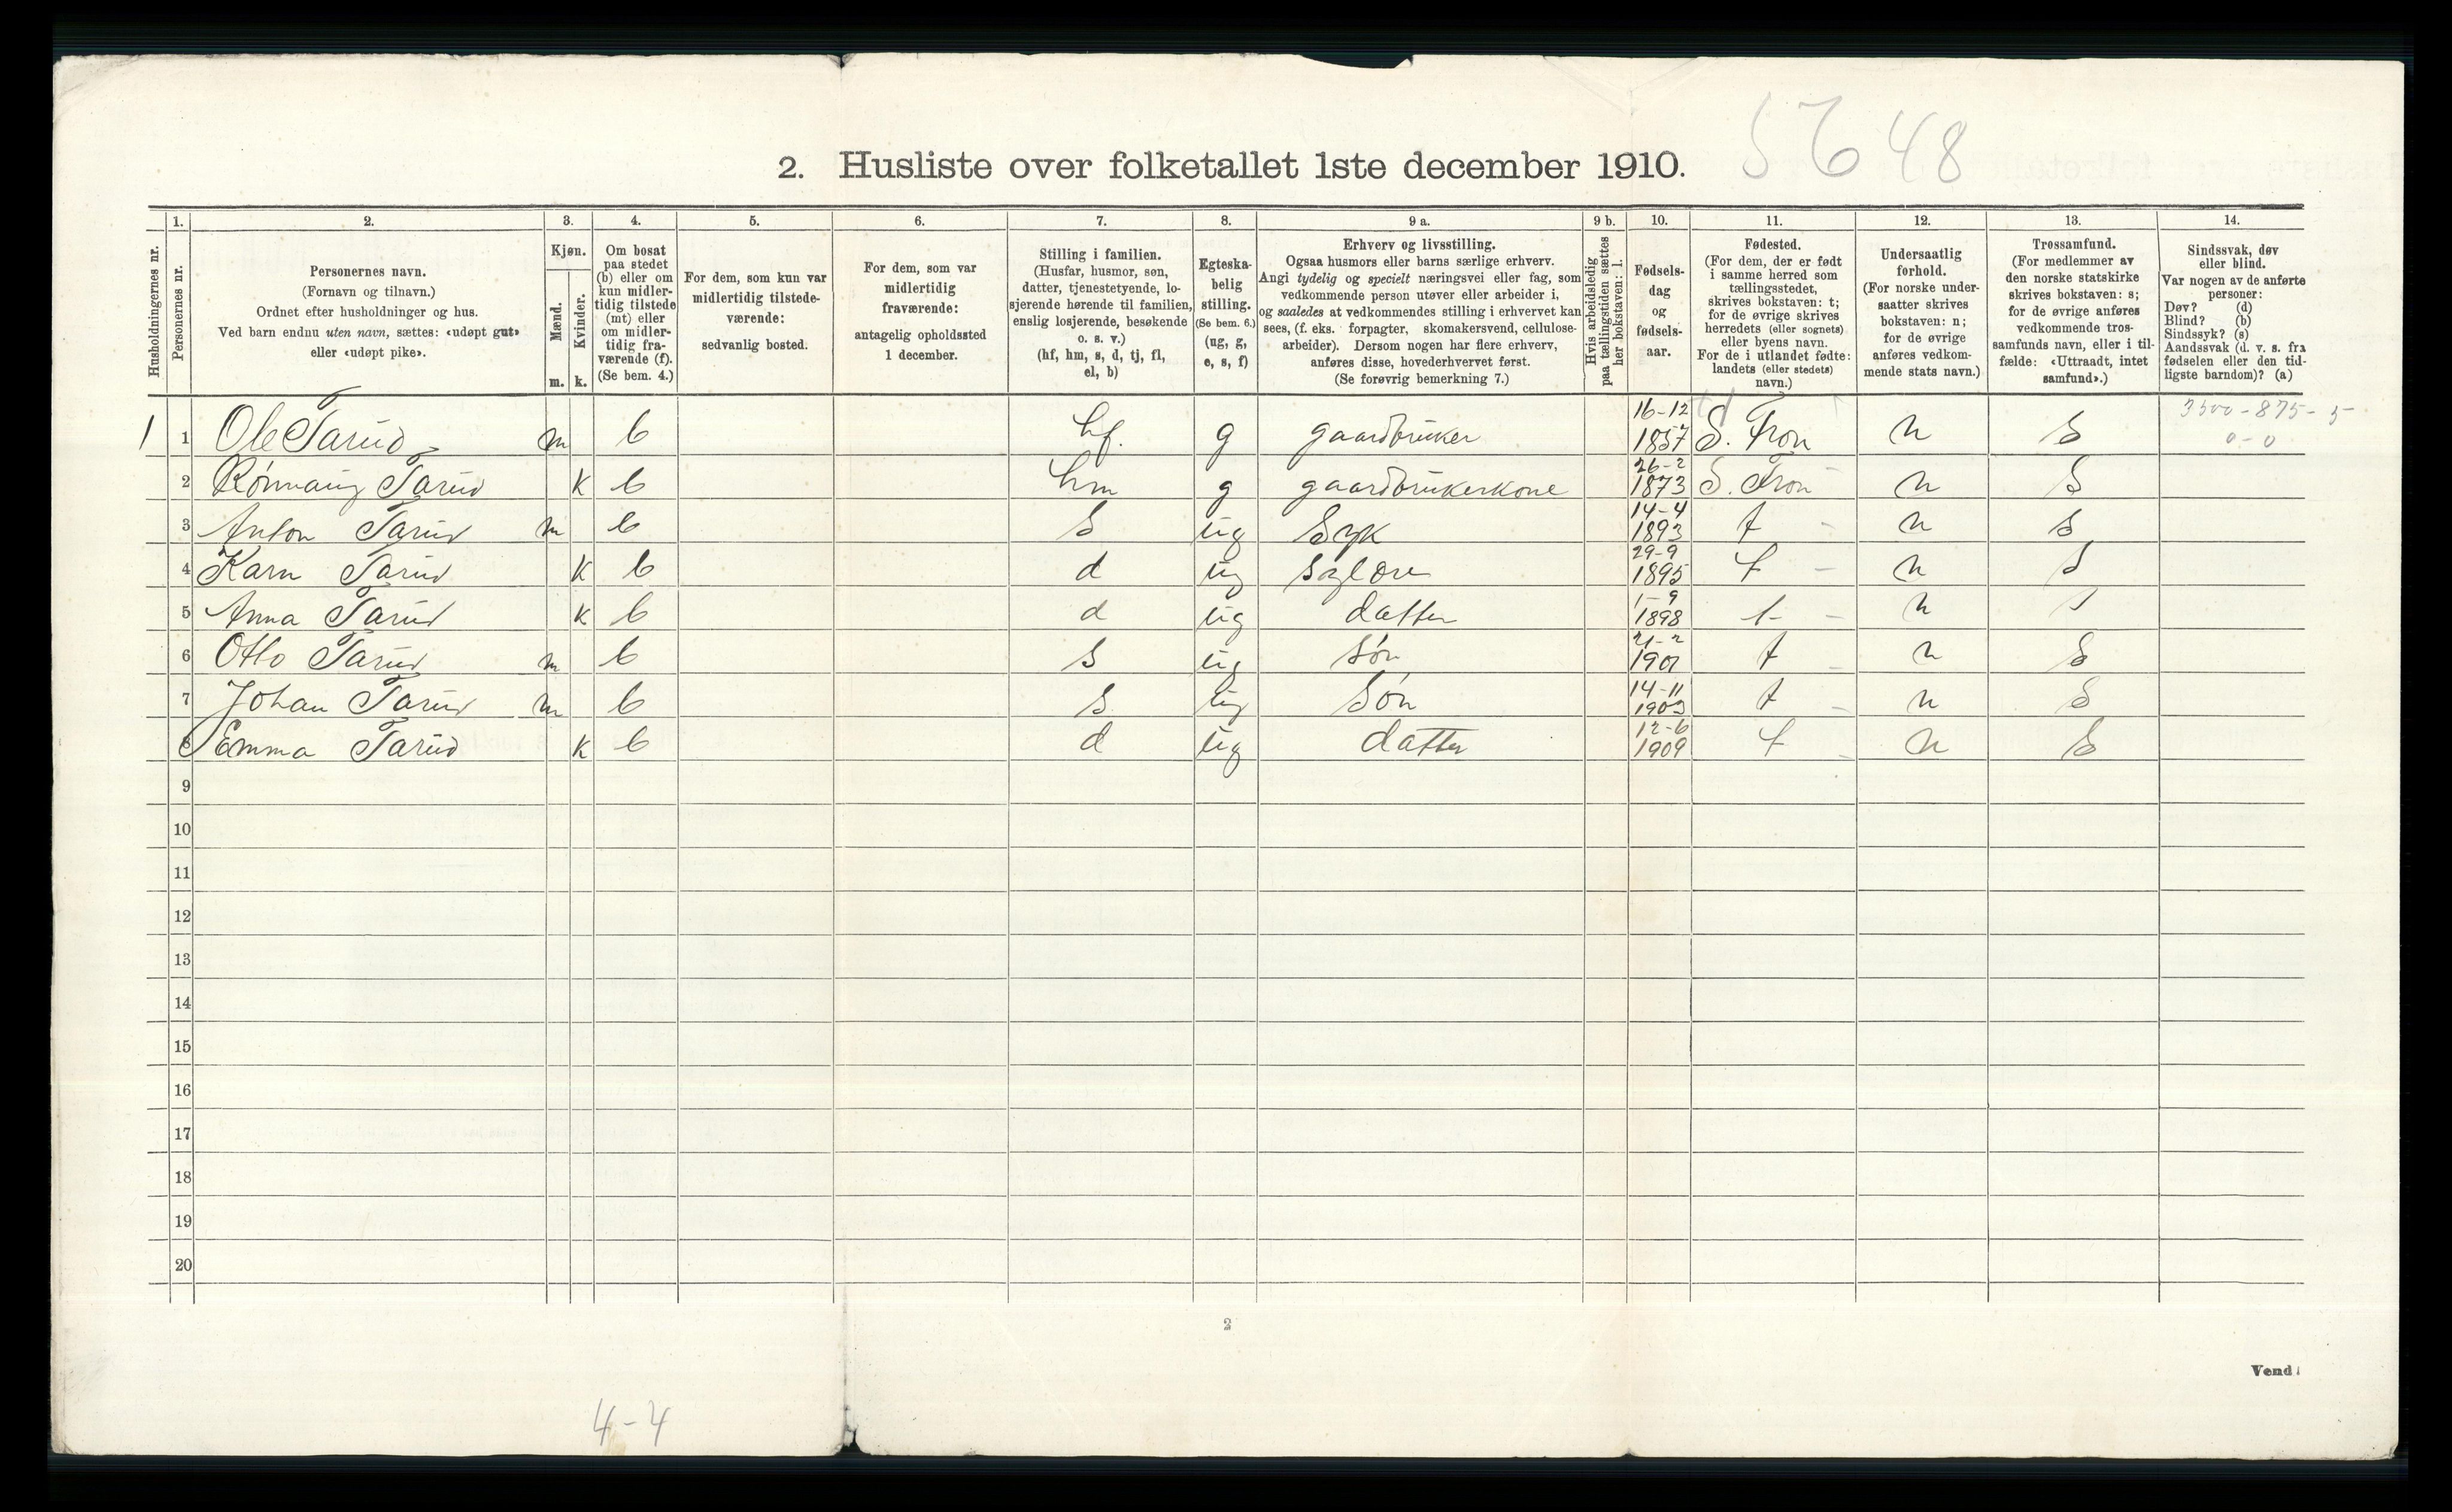 5648
2. Husliste over folketallet 1ste december 1910.
Husholdningernes nr.
1.
Personernes nr.
2.
Personernes navn.
(Fornavn og tilnavn.)
Ordnet efter husholdninger og hus.
Ved barn endnu uten navn, sættes: «udøpt gut»
eller «udøpt pike».
3.
Kjøn.
Mænd.
Kvinder.
m.
k.
4.
Om bosat
paa stedet
(b) eller om
kun midler-
tidig tilstede
(mt) eller
om midler-
tidig fra-
værende (f).
(Se bem. 4.)
5.
For dem, som kun var
midlertidig tilstede-
værende:
sedvanlig bosted.
6.
For dem, som var
midlertidig
fraværende:
antagelig opholdssted
1 december.
7.
Stilling i familien.
(Husfar, husmor, søn,
datter, tjenestetyende, lo-
sjerende hørende til familien,
enslig losjerende, besøkende
o. s. v.)
(hf, hm, s, d, tj, fl,
el, b)
8.
Egteska-
belig
stilling.
(Se bem. 6.)
(ug, g,
e, s, f)
9 a.
Erhverv og livsstilling.
Ogsaa husmors eller barns særlige erhverv.
Angi tydelig og specielt næringsvei eller fag, som
vedkommende person utøver eller arbeider i,
og saaledes at vedkommendes stilling i erhvervet kan
sees, (f. eks. forpagter, skomakersvend, cellulose-
arbeider). Dersom nogen har flere erhverv,
anføres disse, hovederhvervet først.
(Se forøvrig bemerkning 7.)
9 b.
Hvis arbeidsledig
paa tællingstiden sættes
her bokstaven: l.
10.
Fødsels-
dag
og
fødsels-
aar.
11.
Fødested.
(For dem, der er født
i samme herred som
tællingsstedet,
skrives bokstaven: t;
for de øvrige skrives
herredets (eller sognets)
eller byens navn.
For de i utlandet fødte:
landets (eller stedets)
navn.)
12.
Undersaatlig
forhold.
(For norske under-
saatter skrives
bokstaven: n;
for de øvrige
anføres vedkom-
mende stats navn.)
13.
Trossamfund.
(For medlemmer av
den norske statskirke
skrives bokstaven: s;
for de øvrige anføres
vedkommende tros-
samfunds navn, eller i til-
fælde: «Uttraadt, intet
samfund».)
14.
Sindssvak, døv
eller blind.
Var nogen av de anførte
personer:
Døv? (d)
Blind? (b)
Sindssyk? (s)
Aandssvak (d. v. s. fra
fødselen eller den tid-
ligste barndom)? (a)
1 1 Ole Tarud m b hf. g gaardbruker 16-12 1857 S. Fron n S 3500-875-5 0-0
2 Rønnaug Tarud k b hm g gaardbrukerkone 26-2 1873 S. Fron n S
3 Anton Tarud m b S ug Syk 14-4 1893 t n S
4 Karn Tarud k b d ug 29-9 1895 t n S
5 Anna Tarud k b d ug datter 1-9 1898 t n S
6 Otto Tarud m b S ug Søn 21-2 1901 t n S
7 Johan Tarud m b S ug Søn 14-11 1903 t n S
8 Emma Tarud k b d ug datter 12-6 1909 t n S
9
10
11
12
13
14
15
16
17
18
19
20
2
Vend!
4-4